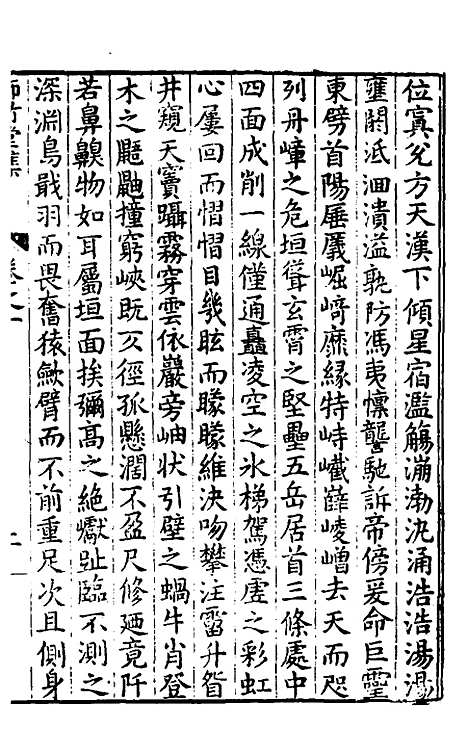 位寘兊方天漢下傾星宿濫觴漰渤沇涌浩浩湯湯
壅閼泜沺潰溢孰防馮夷懍讋馳訴帝傍爰命巨靈
東劈首陽厜㕒崛﨑靡緣特峙巀嶭崚嶒去天而咫
列丹嶂之危垣聳玄霄之堅壘五岳居首三條處中
四面成削一線僅通矗凌空之氷梯駕憑虛之彩虹
心屢回而慴慴目幾眩而矇矇維決吻攀注霤升眢
井窺天竇躡霧穿雲依巖旁岫狀引壁之蝸牛肖登
木之鼯鼬撞窮峽既又徑孤懸濶不盈尺修廼竟阡
若鼻齅物如耳屬垣面挨彌高之絶巘趾臨不測之
深淵鳥戢羽而畏奮猿歛臂而不前重足次且側身
卷之一